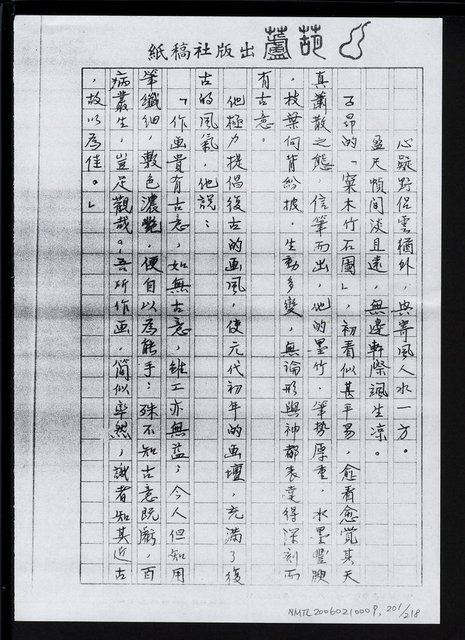 葫蘆出版社稿紙
心疑野侶雲猶外，與寄風人水一方。
盈尺幀間淡且遠，無邊軒際颯生凉。
子昂的「窠木竹石圖」，初看似甚平易，愈看愈覺其天
真蕭散之態，信筆而出，他的墨竹，筆勢厚重，水墨豐腴
，枝葉向背紛披，生動多變，無論形與神都表達得深刻而
有古意。
他極力提倡復古的画風，使元代初年的画壇，充滿了復
古的風氣，他說：
「作画貴有古意，如無古意，雖工亦無益；今人但知用
筆纖細，敷色濃艷，便自以為能手；殊不知古意既虧，百
病叢生，豈足觀哉。吾所作画，簡似率然，識者知其近古
，故以為佳。」
NMTL20060210009, 201/218